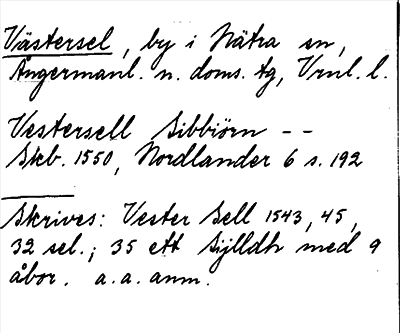 Västersel, by i Nätra sn,
Ångermanl. n. doms. tg, Vrnl. l.
Vestersell Sibbiörn --
Skb. 1550, Nordlander 6 s. 192
Skrives: Vester Sell 1543, 45,
32 sel.; 35 ett Sijlldh med 9
åbor. a.a. anm.